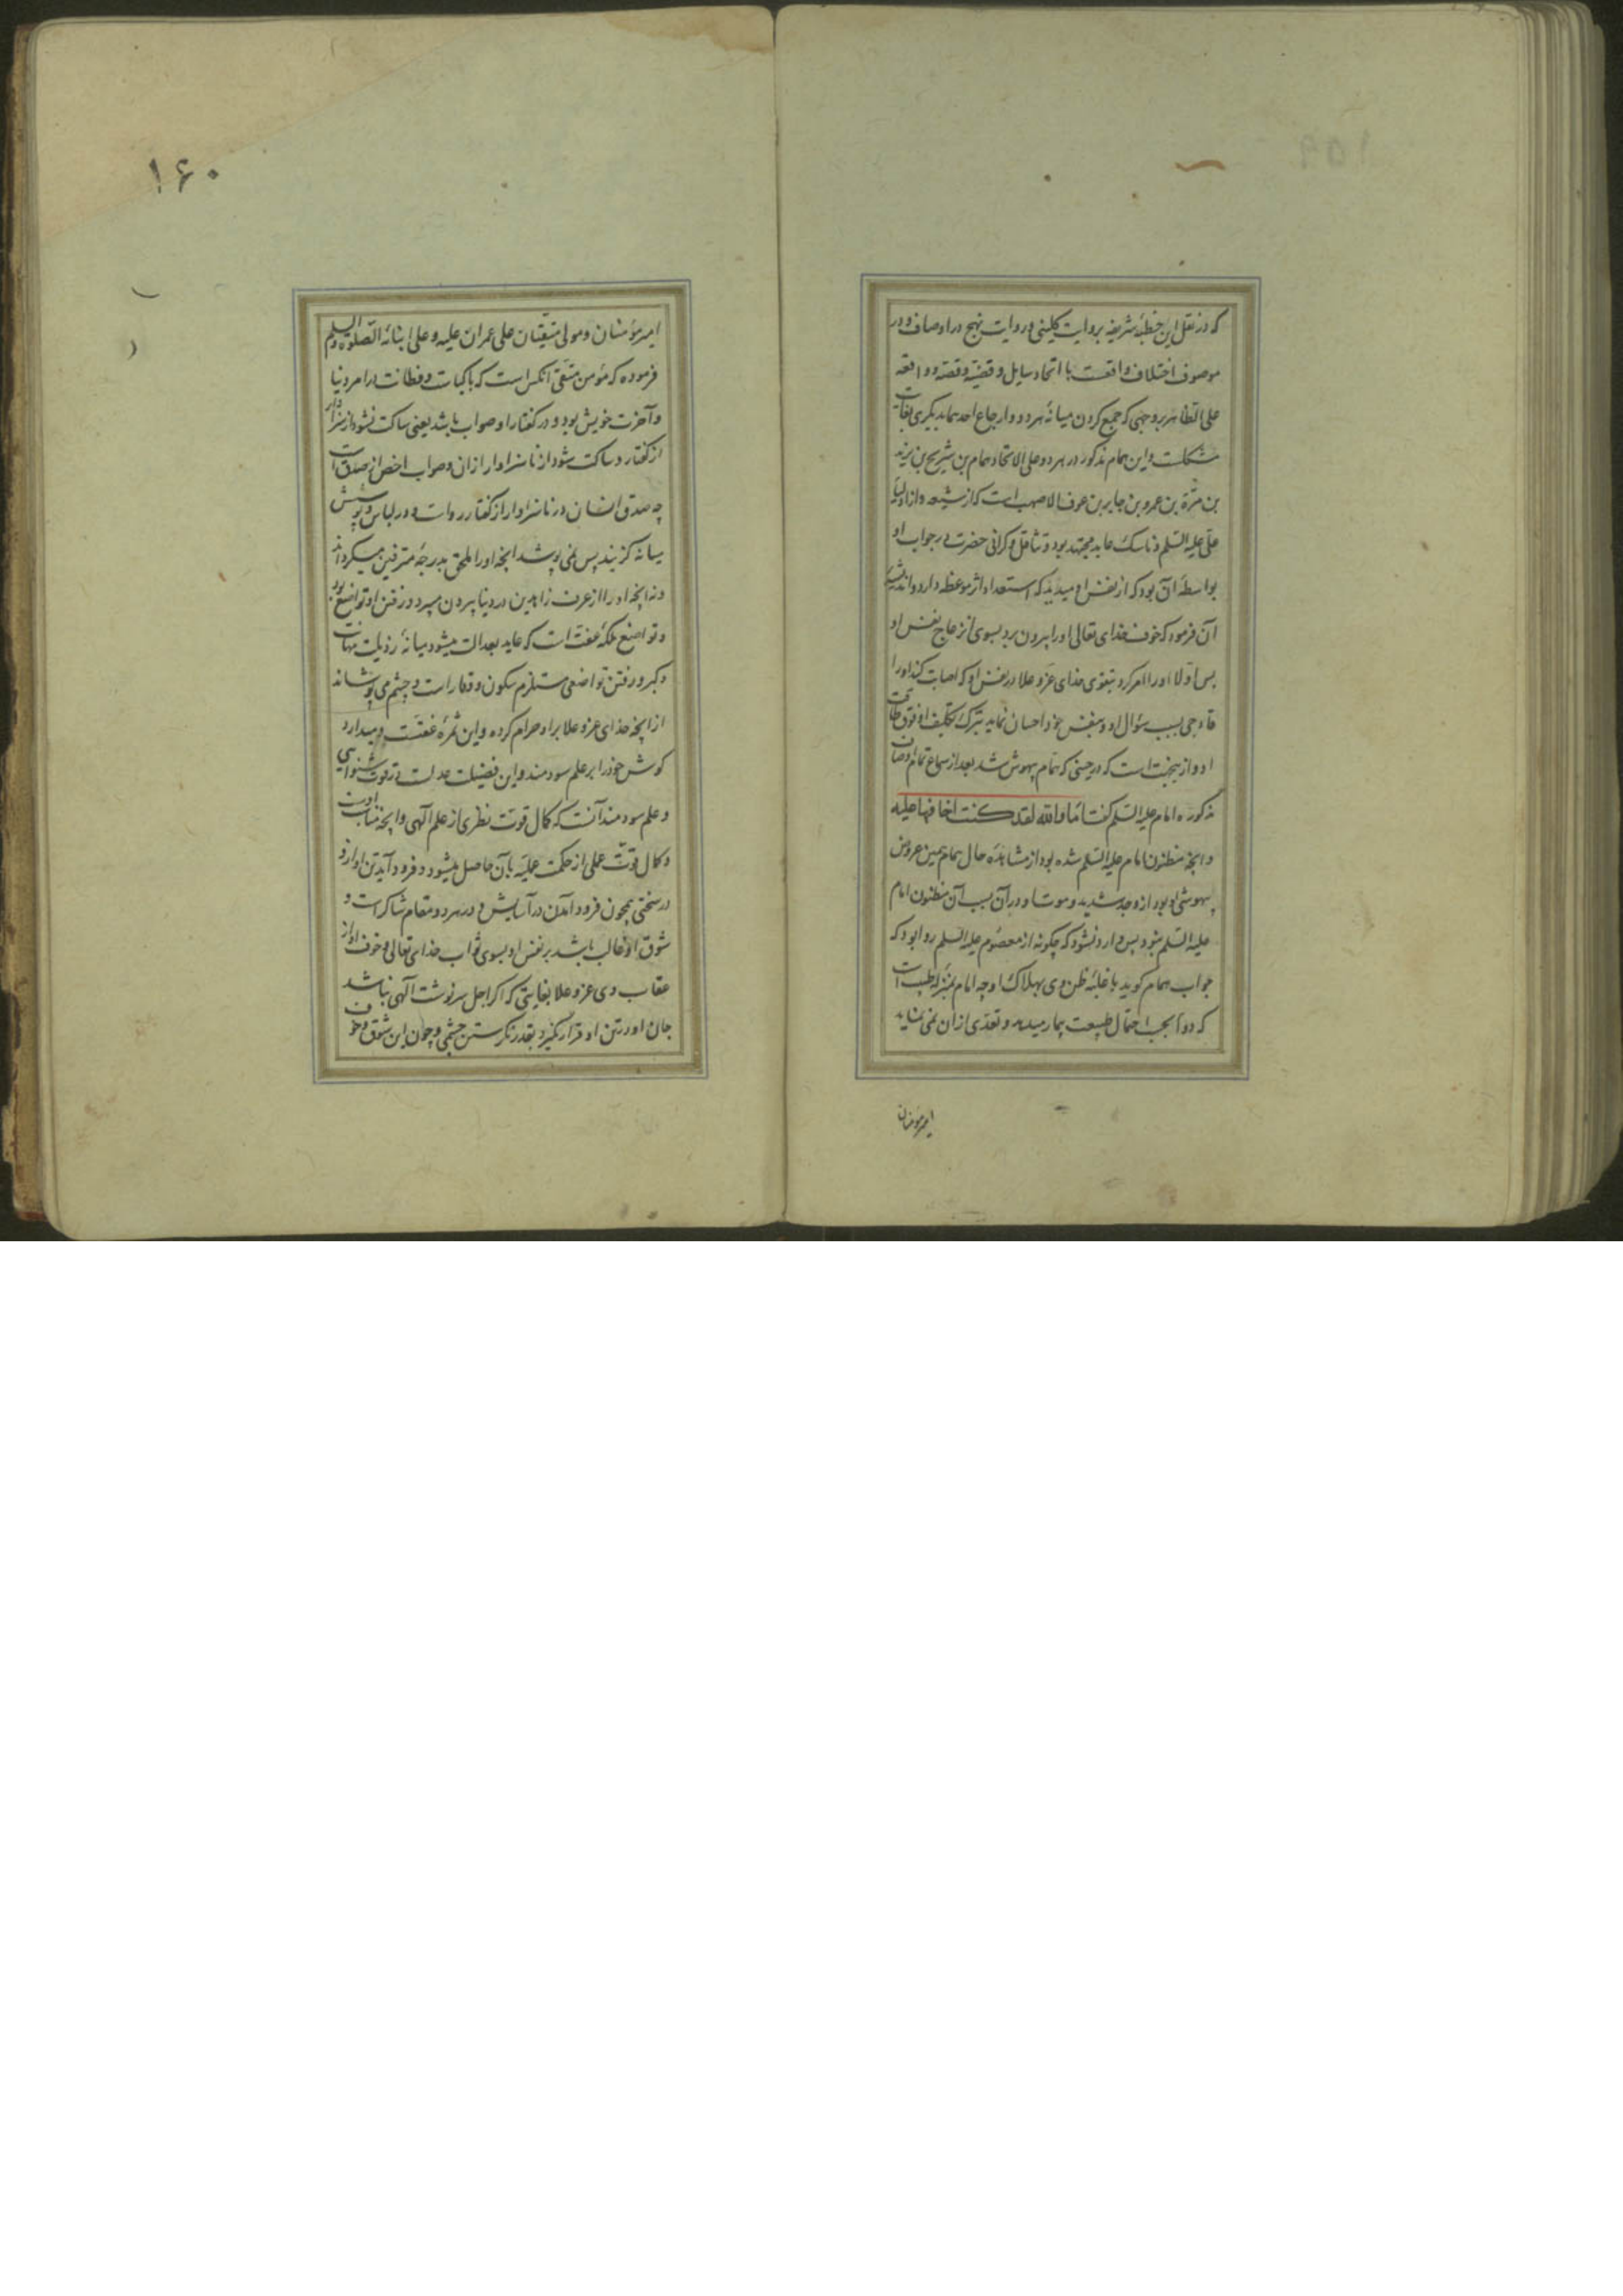 که در نقل این خطبهٔ شریفه بروایت کلینی و روایت نهج در اوصاف و در
موصوف اختلاف واقعست با اتحاد سایل و قضیه و قصه و واقعه
علی الظاهر بر وجهی که جمع کردن میانهٔ هر دو و ارجاع احدهما بدیگری بغایت
مشکلست و این همام مذکور در هر دو علی الاتحاد همام بن شریح بن یزید
بن مرّة بن عمرو بن جابر بن عوف الاصهب است که از شیعه و از اولیاء
علی علیه السلم و ناسک عابد مجتهد بود و تثاقل و کرانی حضرت در جواب او
بواسطهٔ آن بود که از نفس او میدید که استعداد اثر موعظه دارد و اندیشهٔ
آن فرمود که خوف خدای تعالی او را بیرون برد بسوی انزعاج نفس او
پس اوّلا او را امر کرد بتقوی خدای عزّ و علا در نفس او که اصابت کند او را
فادحی بسبب سؤال او و بنفس خود احسان نماید بترک تکلیف او فوق طاقت
او و از یجهت است که در حینی که همام بیهوش شد بعد از سماع تمام اوصاف
مذکوره امام علیه السلم گفت اما والله لقد کنت اخافها علیه
و انچه مظنون امام علیه السلم شده بود از مشاهدهٔ حال همام همین عروض
بیهوشی او بود از وجد شدید و موت او در آن سبب آن مظنون امام
علیه السلم نبود پس وارد نشود که چگونه از معصوم علیه السلم روا بود که
جواب همام کوید با غلبهٔ ظن وی بهلاک او چه امام بمنزلهٔ طبیب است
که دوا بحسب احتمال طبیعت بیمار میدهد و تعدّی از ان نمی نماید
امیر مؤمنان
۱۶۰
امیر مؤمنان و مولی متقیان علی عمران علیه و علی ابنائه الصّلوة و السلم
فرموده که مؤمن متّقی آنکس است که با کیاست و فطانت در امر دنیا
و آخرت خویش بود و در گفتار او صواب باشد یعنی ساکت نشود از سزاوار
از گفتار و ساکت شود از ناسزاوار از ان و صواب اخص از صدق است
چه صدق انسان در ناسزاوار از گفتار رواست و در لباس و پوشش
میانه گزیند پس نمی پوشد انچه او را ملحق بدرجهٔ مترفین میکرداند
و نه انچه او را از عرف زاهدین در دنیا بیرون میبرد و رفتن او تواضع بود
و تواضع ملکهٔ عفت است که عاید بعدالت میشود میانهٔ رذیلت مهانت
و کبر و رفتن تواضعی مستلزم سکون و وقار است و چشم می پوشاند
از انچه خدای عزّ و علا بر او حرام کرده و این ثمرهٔ عفّتست و میدارد
کوش خود را بر علم سودمند و این فضیلت عدلست در قوت شنوایی
و علم سودمند آنست که کمال قوت نظری از علم الهی و انچه مناسب اوست
و کمال قوّت عملی از حکمت عملیّه بآن حاصل میشود و فرود آید تن او ازو
در سختی همچون فرود آمدن در آسایش و در هر دو مقام شاکر است و
شوق او غالب باشد بر نفس او بسوی ثواب خدای تعالی و خوف او از
عقاب وی عزّ و علا بغایتی که اگر اجل سرنوشت الهی نباشد
جان او در تن او قرار نگیرد بقدر نگرستن چشمی و چون این شوق و خوف